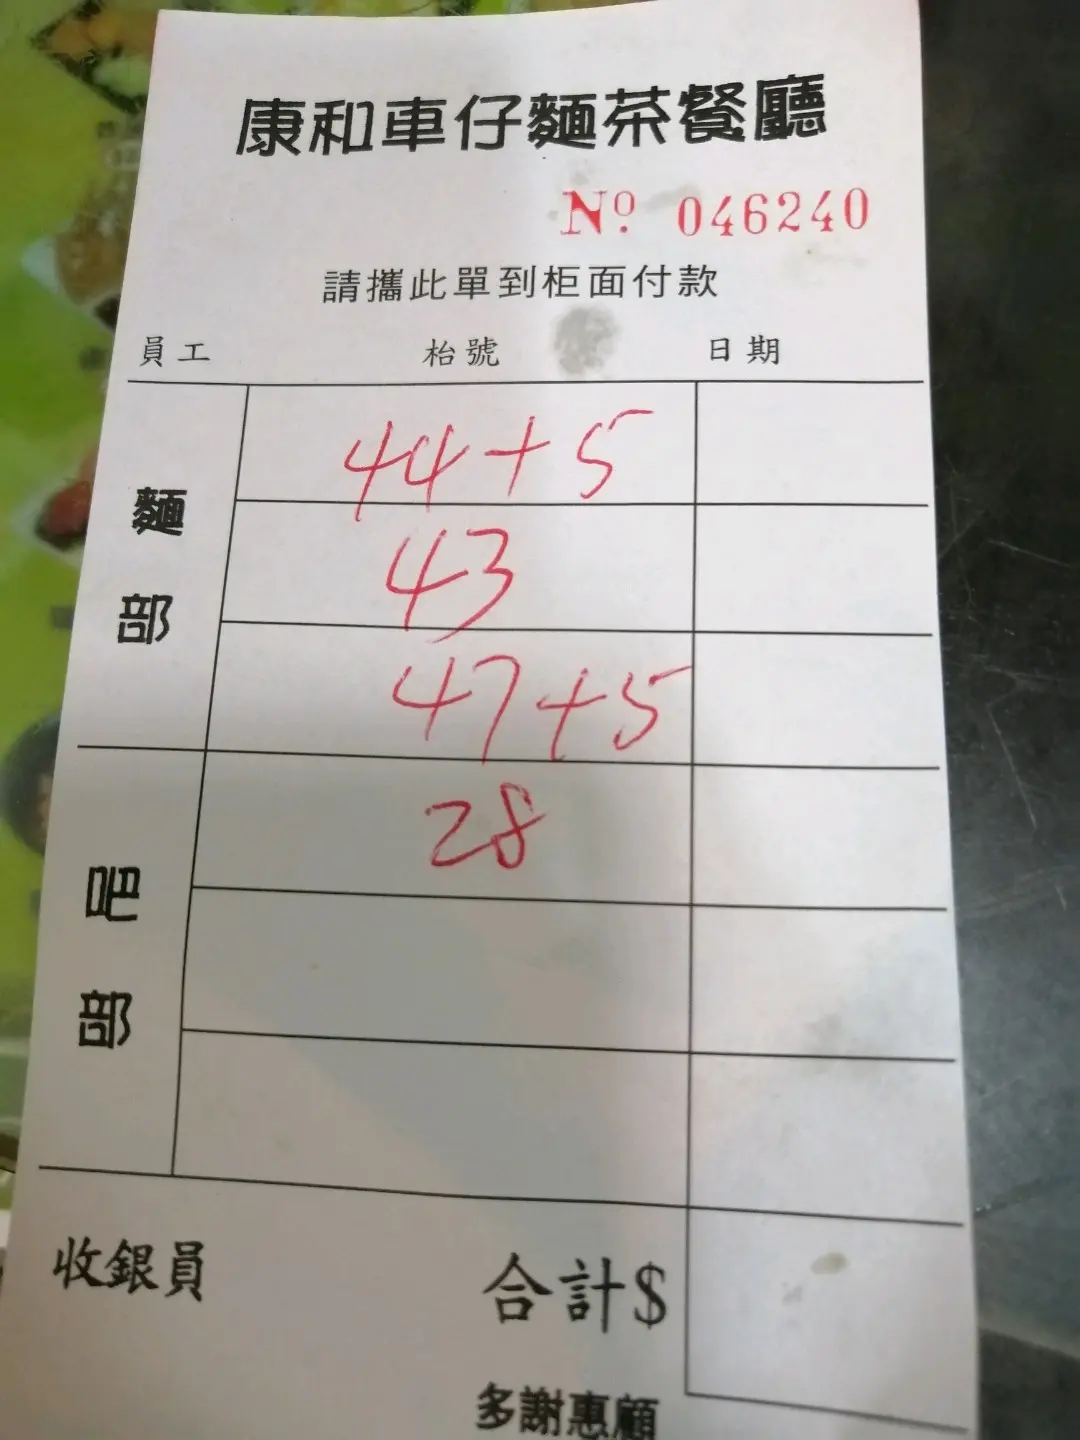 康和車仔麵茶餐廳
Nº. 046240
請攜此單到柜面付款
員工 枱號 日期
麵部
44+5
43
47+5
吧部
28
收銀員 合計$
多謝惠顧